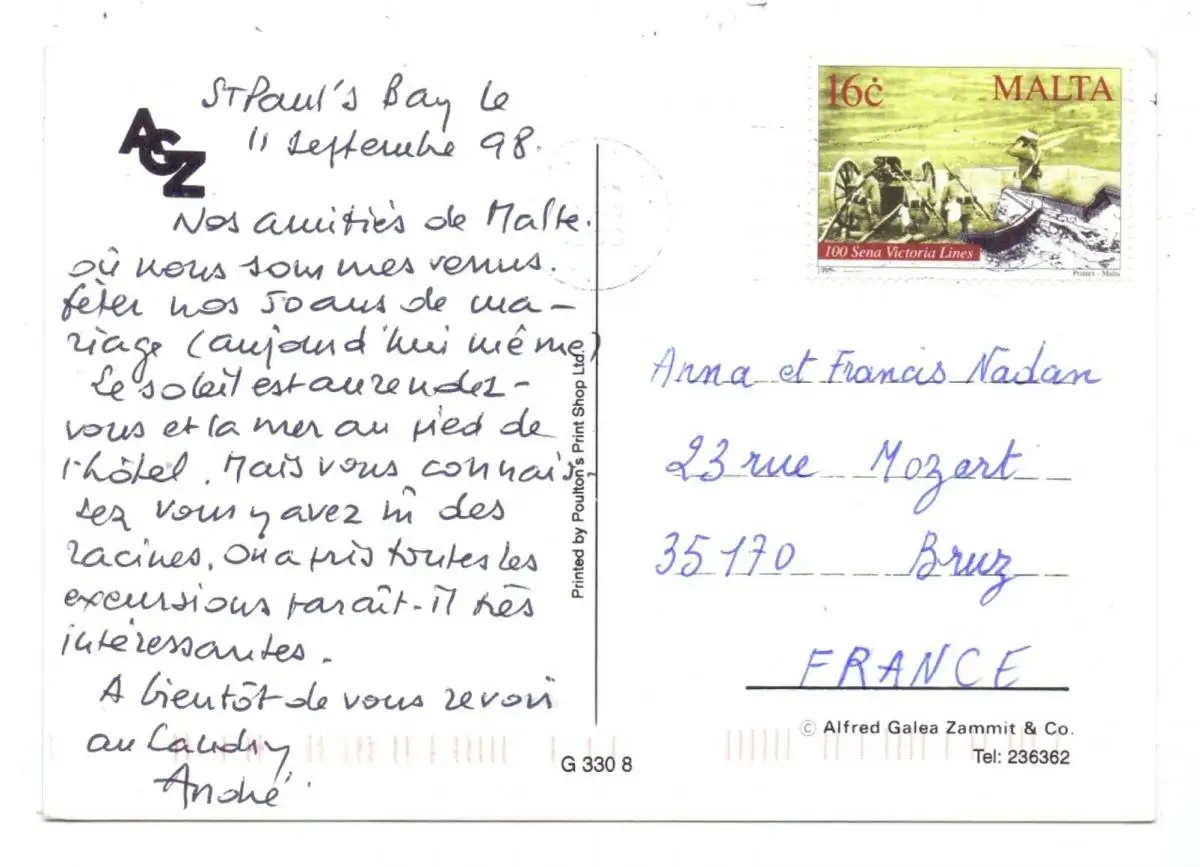 St Paul's Bay le
11 septembre 98.
AGZ
Nos amitiés de Malte.
où nous sommes venus.
fêter nos 50 ans de ma-
riage (aujourd'hui même)
Le soleil est au rendez-
vous et la mer au pied de
l'hôtel. Mais vous connais-
sez vous y avez des
racines. On a pris toutes les
excursions paraît-il très
intéressantes.
A bientôt de vous revoir
au
André
Printed by Poulton's Print Shop Ltd.
G 330 8
16ċ MALTA
100 Sena Victoria Lines
Printex - Malta
Anna et Francis Nadan
23 rue Mozart
35170 Bruz
FRANCE
© Alfred Galea Zammit & Co.
Tel: 236362